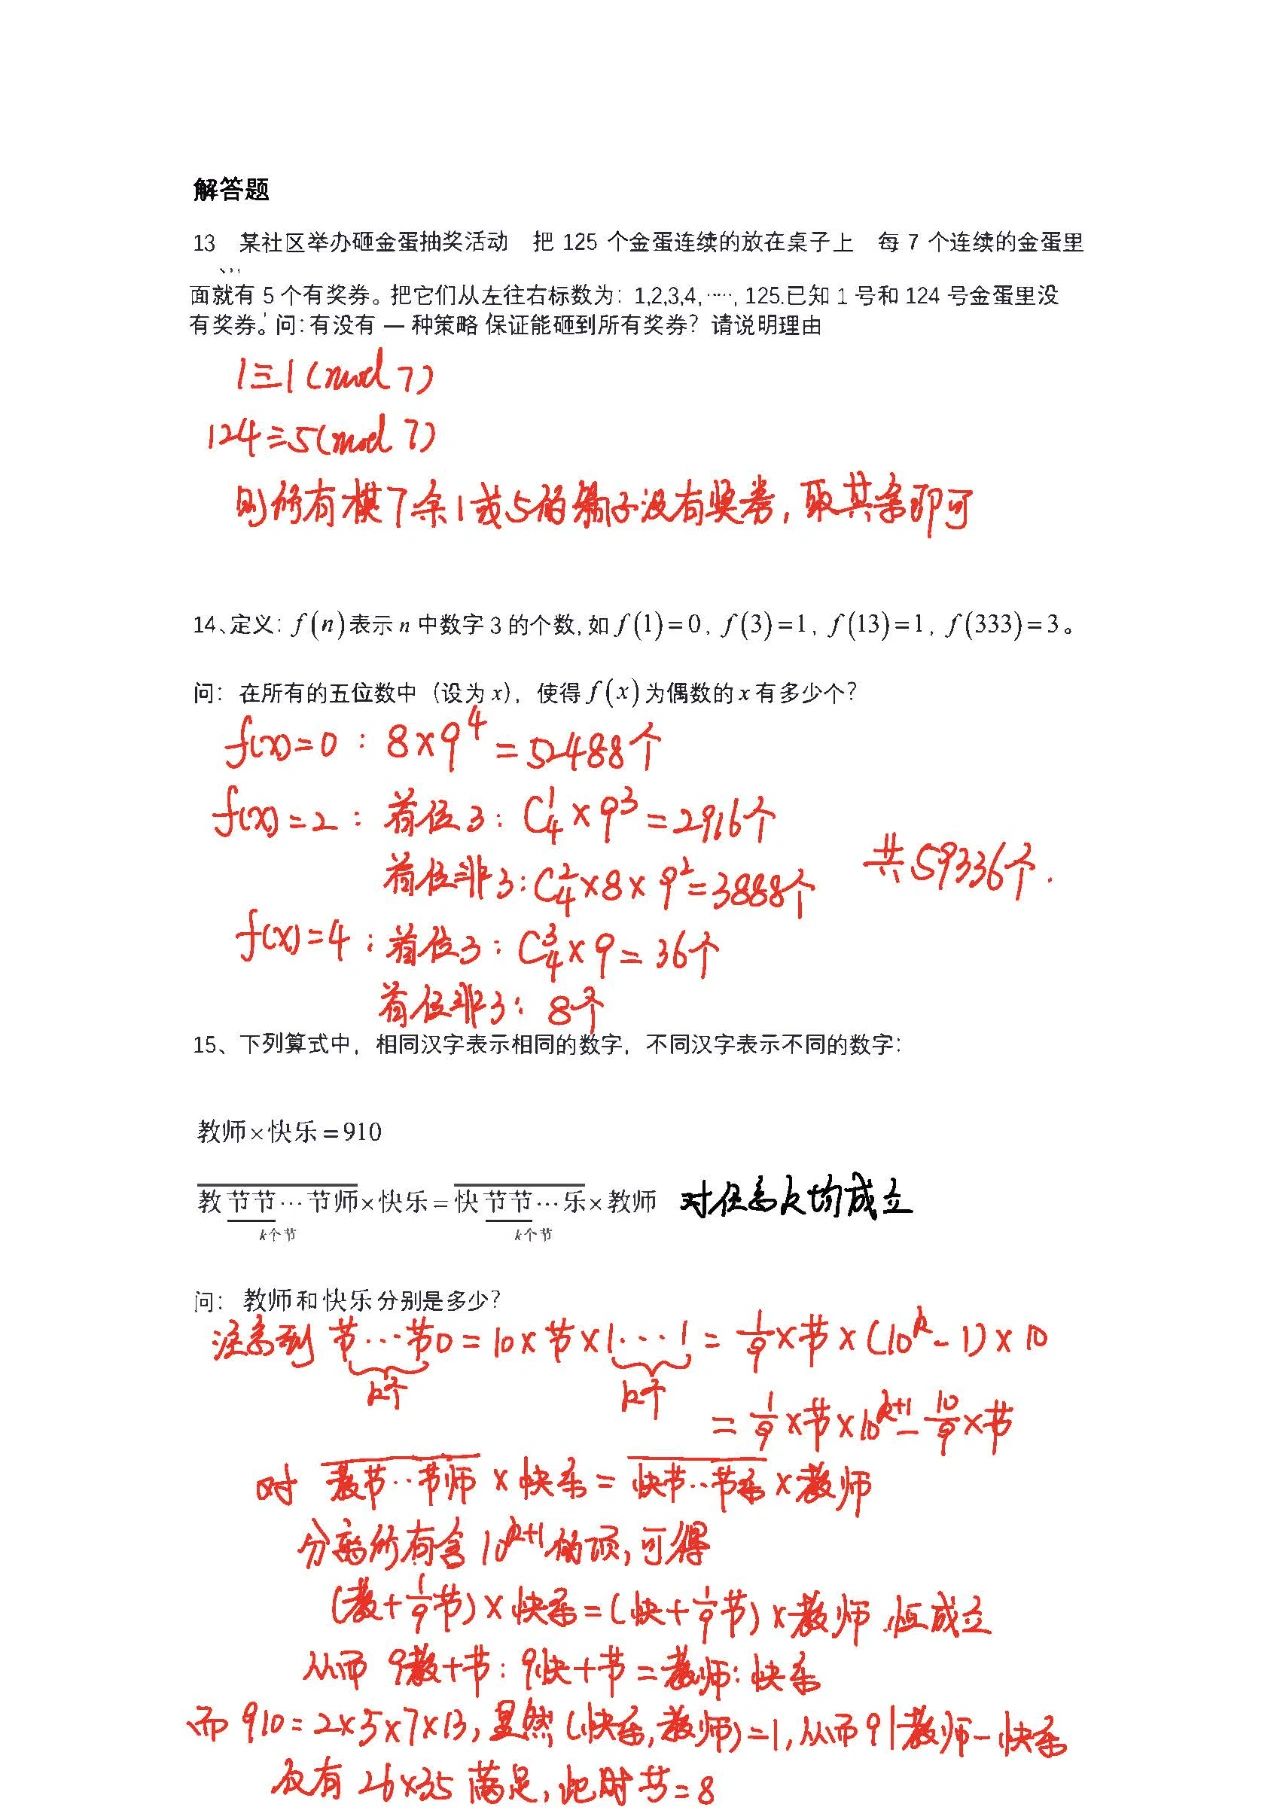 解答题
13 某社区举办砸金蛋抽奖活动 把 125 个金蛋连续的放在桌子上 每 7 个连续的金蛋里
面就有 5 个有奖券。把它们从左往右标数为：1,2,3,4,·····, 125.已知 1 号和 124 号金蛋里没
有奖券。问：有没有 一 种策略 保证能砸到所有奖券？请说明理由
1≡1 (mod 7)
124≡5(mod 7)
则所有模7余1或5的箱子没有奖券，取其余即可
14、定义：f(n)表示 n 中数字 3 的个数, 如 f(1)=0, f(3)=1, f(13)=1, f(333)=3。
问：在所有的五位数中（设为 x），使得 f(x) 为偶数的 x 有多少个？
f(x)=0 : 8×9⁴ = 52488个
f(x)=2 : 首位3: C₄¹×9³=2916个
首位非3: C₄²×8×9²=3888个
共59336个.
f(x)=4 : 首位3: C₄³×9=36个
首位非3: 8个
15、下列算式中，相同汉字表示相同的数字，不同汉字表示不同的数字：
教师×快乐=910
教节节…节师×快乐=快节节…乐×教师 对任意k均成立
k个节 k个节
问： 教师和快乐分别是多少？
注意到 节…节0=10×节×1…1=1/9×节×(10ᵏ-1)×10
k个 k个
=1/9×节×10ᵏ⁺¹-10/9×节
对 教节··节师×快乐=快节··节乐×教师
分离所有含10ᵏ⁺¹的项,可得
(教+1/9节)×快乐=(快+1/9节)×教师 恒成立
从而 9教+节:9快+节=教师:快乐
而910=2×5×7×13,显然(快乐,教师)=1,从而9|教师-快乐
仅有 26×35 满足,此时节=8